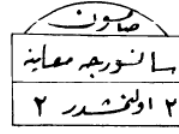 صالون
سانسورجه معاينه
٢ اولنمشدر ٢